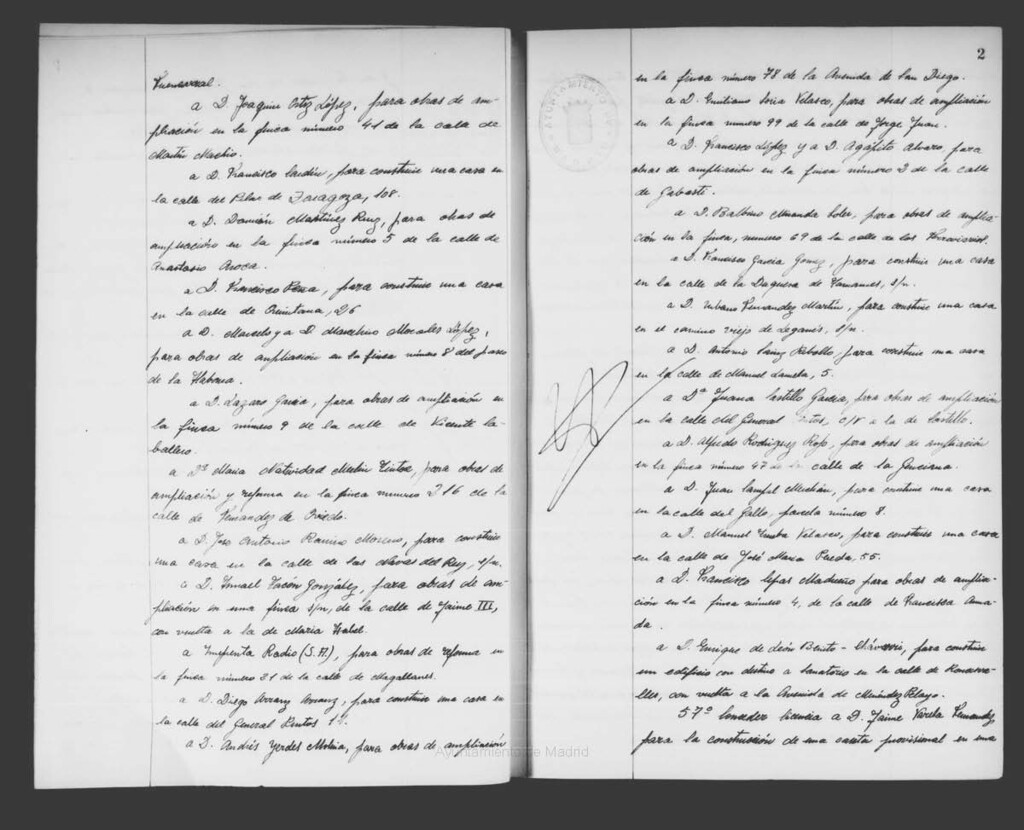 Fuencarral.
a D. Joaquin Ortiz López, para obras de am-
pliación en la finca número 41 de la calle de
Martin Machio.
a D. Francisco para construir una casa en
la calle del Pilar de Zaragoza, 108.
a D. Damián Martínez Ruiz, para obras de
ampliación en la finca número 5 de la calle de
Anastasio Aroca.
a D. Francisco Pena, para construir una casa
en la calle de Quintana, 26
a D. Marcelo y a D. Marcelino Morales López,
para obras de ampliación en la finca número 8 del paseo
de la Habana.
a D. Lazaro Garcia, para obras de ampliación en
la finca número 9 de la calle de Vicente Ca-
ballero.
a Dª Maria Natividad para obras de
ampliación y reforma en la finca numero 216 de la
calle de Fernandez de Oviedo.
a D. Jose Antonio Ramiro Moreno, para construir
una casa en la calle de las Naves del Rey, s/n.
a D. Ismael Tacón González, para obras de am-
pliación en una finca s/n, de la calle de Jaime III,
con vuelta a la de Maria Isabel.
a Imprenta Radio (S.A.), para obras de reforma en
la finca número 21 de la calle de Magallanes.
a D. Diego Arranz Arranz, para construir una casa en
la calle del General Pintos 17.
a D. Andrés Yerdes Molina, para obras de ampliación
2
AYUNTAMIENTO DE MADRID
en la finca número 78 de la Avenida de San Diego.
a D. Emiliano Soria Velasco, para obras de ampliación
en la finca numero 99 de la calle de Jorge Juan.
a D. Francisco López y a D. Agapito Alvaro, para
obras de ampliación en la finca número 2 de la calle
de Gabasti.
a D. Balbino Miranda Soler, para obras de amplia-
ción en la finca, numero 69 de la calle de los Ferroviarios.
a D. Francisco Garcia Gomez, para construir una casa
en la calle de la Duquesa de Tamames, s/n.
a D. Urbano Fernandez Martín, para construir una casa
en el camino viejo de Leganés, s/n.
a D. Antonio Sainz Rebollo, para construir una casa
en la calle de Manuel Lamela, 5.
a Dª Juana Castillo Garcia, para obras de ampliación
en la calle del General Pintos, c/v a la de Castillo.
a D. Alfredo Rodriguez Rojo, para obras de ampliación
en la finca número 47 de la calle de la Genciana.
a D. Juan para construir una casa
en la calle del Gallo, parcela número 8.
a D. Manuel Velasco, para construir una casa
en la calle de José Maria Pereda 55.
a D. Francisco Madueño para obras de amplia-
ción en la finca número 4, de la calle de Francisca Arma-
da.
a D. Enrique de León Benito - para construir
un edificio con destino a Sanatorio en la calle de Roncesva-
lles, con vuelta a la Avenida de Menéndez Pelayo.
57º Conceder licencia a D. Jaime Varela Fernandez,
para la construcción de una caseta provisional en una
Ayuntamiento de Madrid